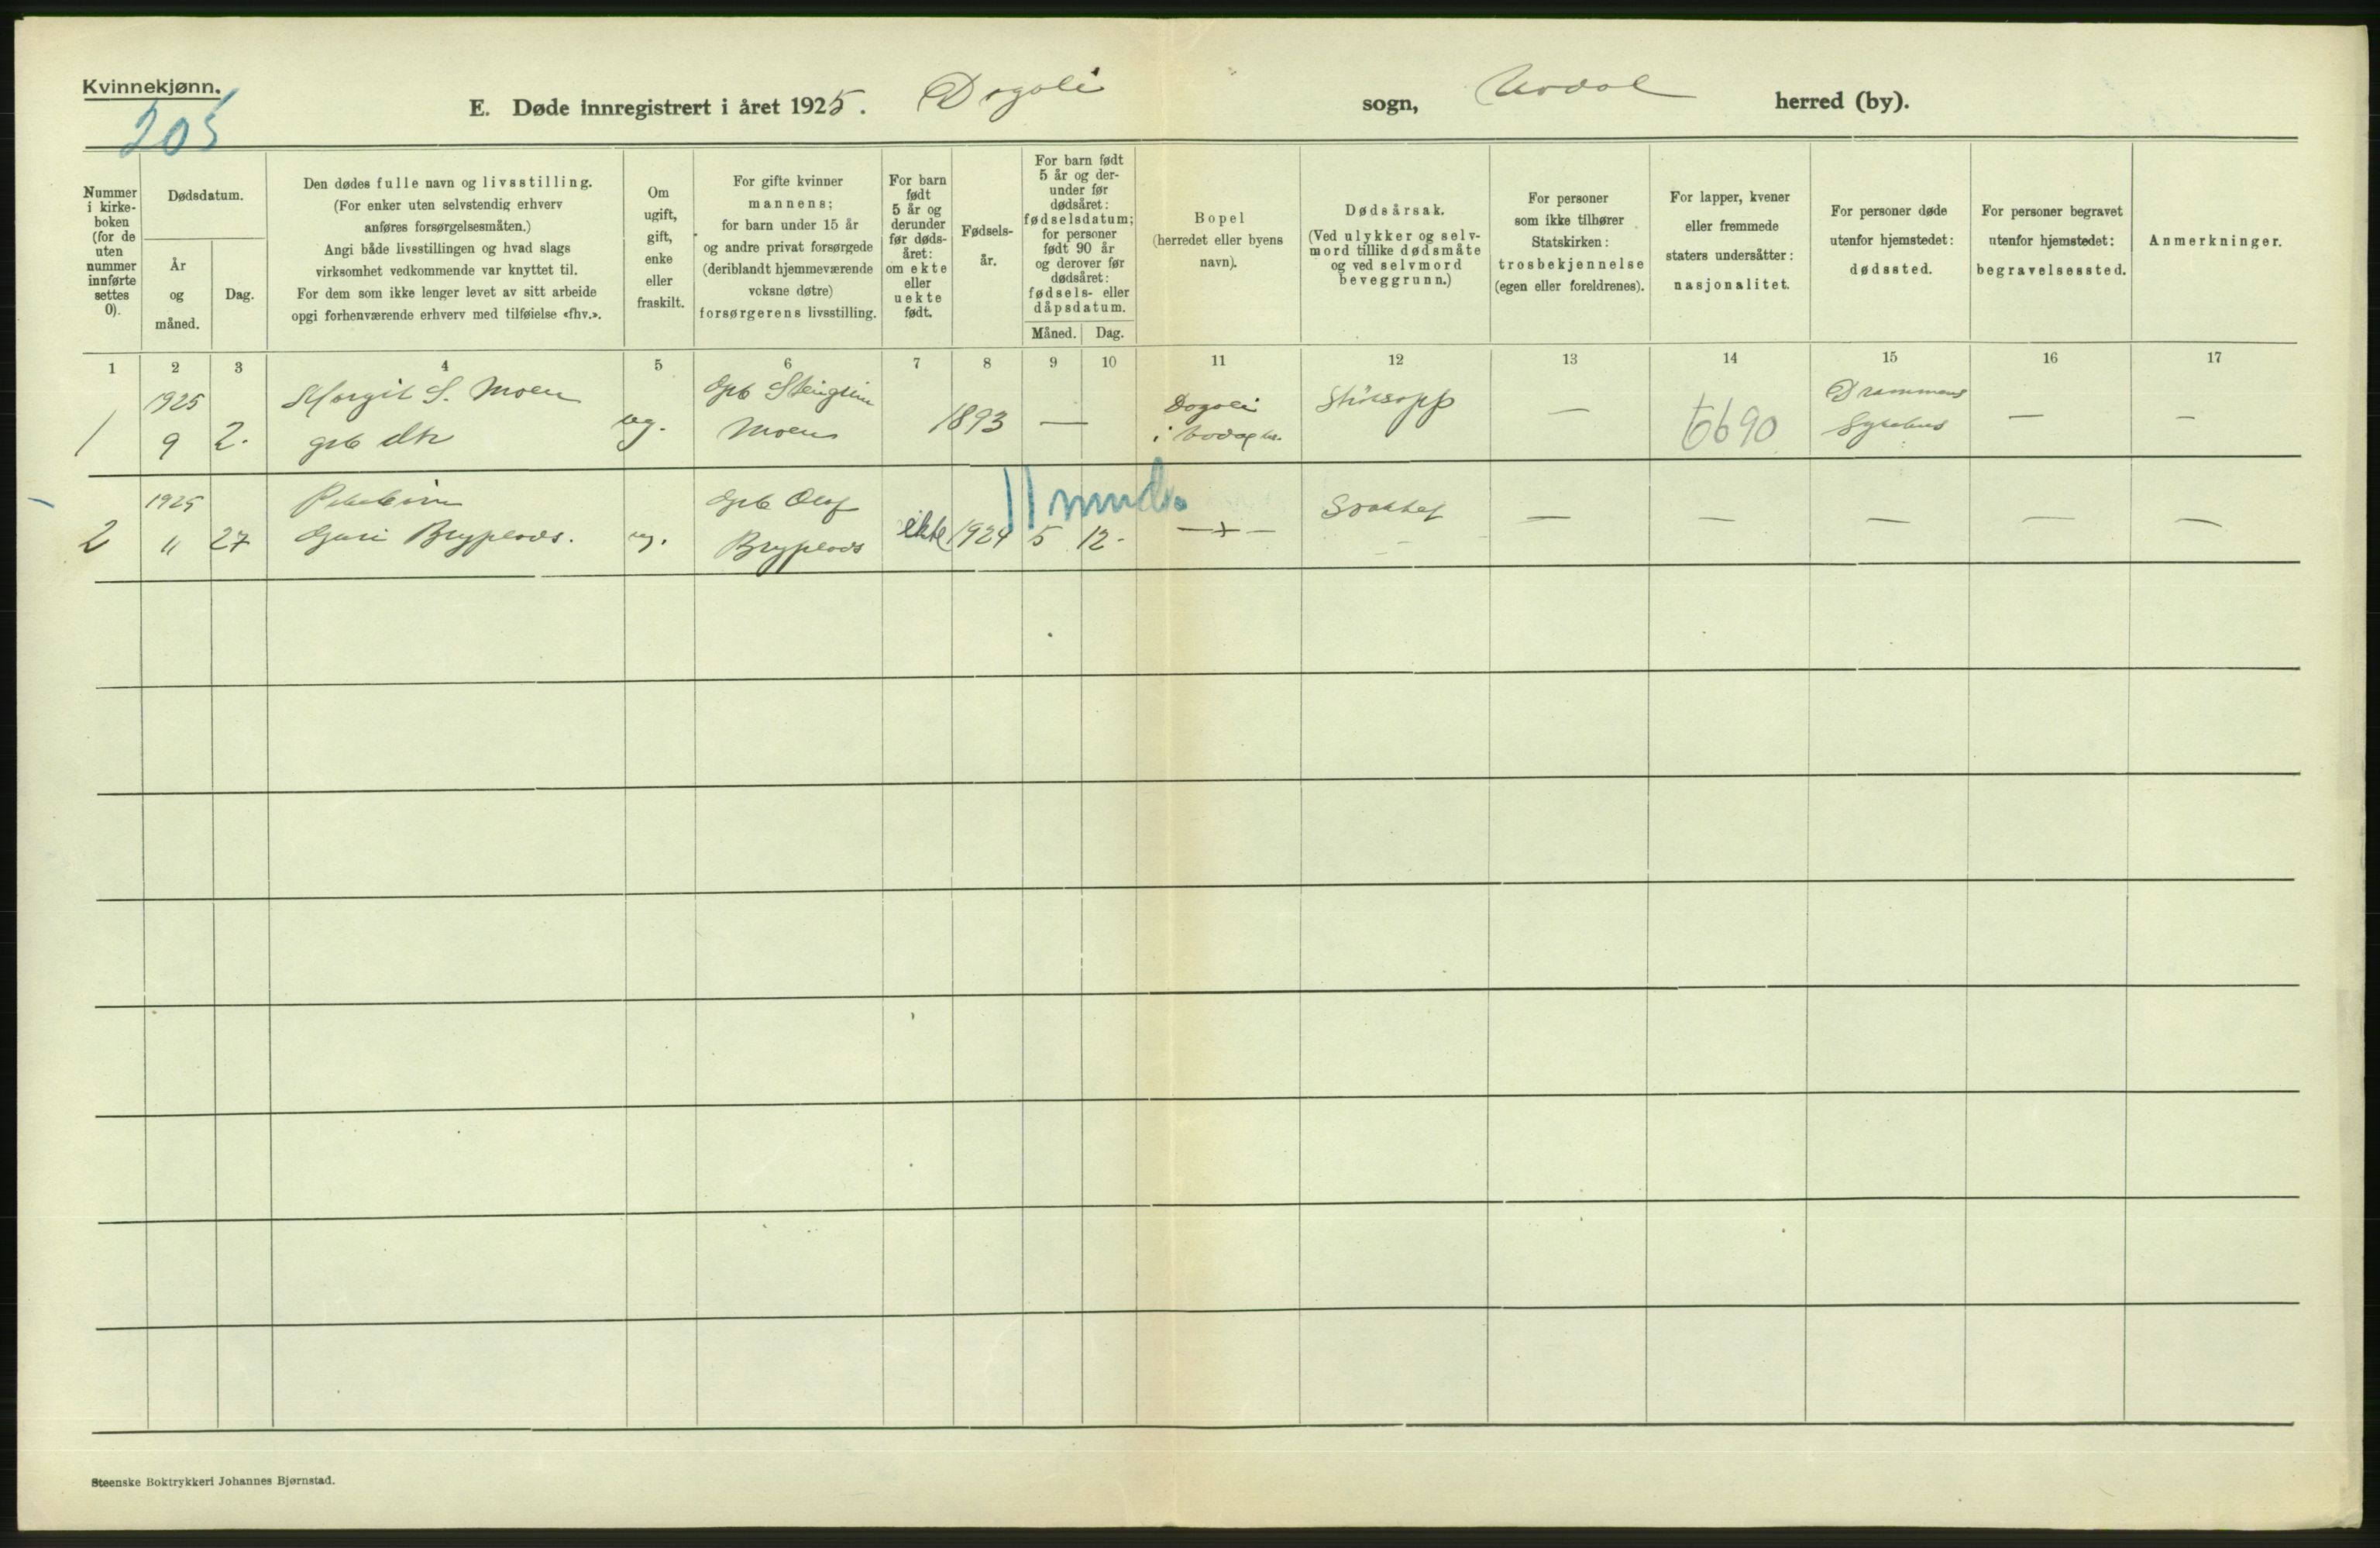 Kvinnekjønn.
205
E. Døde innregistrert i året 1925. Dagali sogn, Uvdal herred (by).
Nummer i kirke-boken (for de uten nummer innførte settes 0).
Dødsdatum.
År og måned.
Dag.
Den dødes fulle navn og livsstilling.
(For enker uten selvstendig erhverv
anføres forsørgelsesmåten.)
Angi både livsstillingen og hvad slags
virksomhet vedkommende var knyttet til.
For dem som ikke lenger levet av sitt arbeide
opgi forhenværende erhverv med tilføielse «fhv.».
Om
ugift,
gift,
enke
eller
fraskilt.
For gifte kvinner
mannens;
for barn under 15 år
og andre privat forsørgede
(deriblandt hjemmeværende
voksne døtre)
forsørgerens livsstilling.
For barn
født
5 år og
derunder
før døds-
året:
om ekte
eller
uekte
født.
Fødsels-
år.
For barn født
5 år og der-
under før
dødsåret:
fødselsdatum;
for personer
født 90 år
og derover før
dødsåret:
fødsels- eller
dåpsdatum.
Måned. Dag.
Bopel
(herredet eller byens
navn).
Dødsårsak.
(Ved ulykker og selv-
mord tillike dødsmåte
og ved selvmord
beveggrunn.)
For personer
som ikke tilhører
Statskirken:
trosbekjennelse
(egen eller foreldrenes).
For lapper, kvener
eller fremmede
staters undersåtter:
nasjonalitet.
For personer døde
utenfor hjemstedet:
dødssted.
For personer begravet
utenfor hjemstedet:
begravelsessted.
Anmerkninger.
1 2 3 4 5 6 7 8 9 10 11 12 13 14 15 16 17
1925 Margit S. Moen Grb Dagali Drammens
1 9 2. grb dtr ug. Moen 1893 — i — 6690 Sykehus — —
11 mndr.
1925 Pikebarn Grb Olaf
2 11 27 Guri ug. ekte 1924 5 12. — — — — — —
Steenske Boktrykkeri Johannes Bjørnstad.